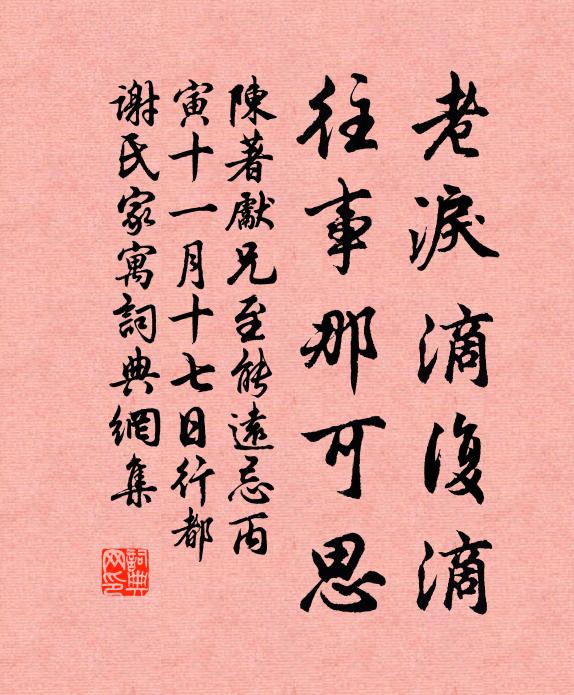 老淚滴復滴
往事那可思
陳著獻兄至能遠忌丙
寅十一月十七日行都
謝氏家寓詞典網集
詞典
网印